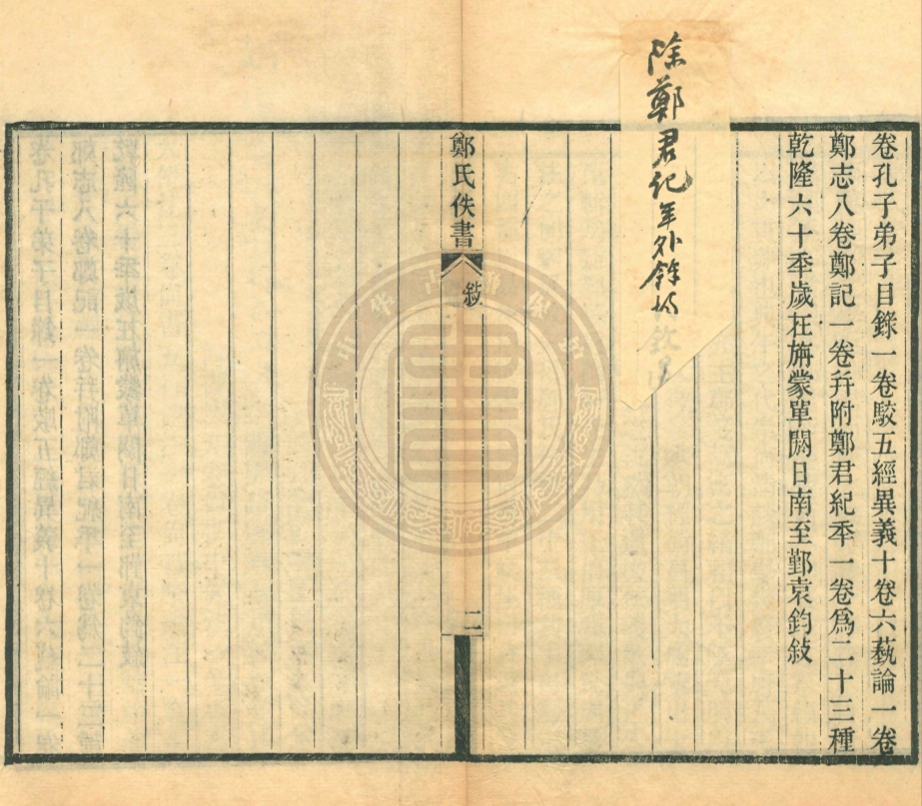 卷孔子弟子目錄一卷駮五經異義十卷六藝論一卷
鄭志八卷鄭記一卷幷附鄭君紀秊一卷爲二十三種
乾隆六十秊歲在旃蒙單閼日南至鄞袁鈞敍
除鄭君紀年外餘均
鄭氏佚書
敍
二